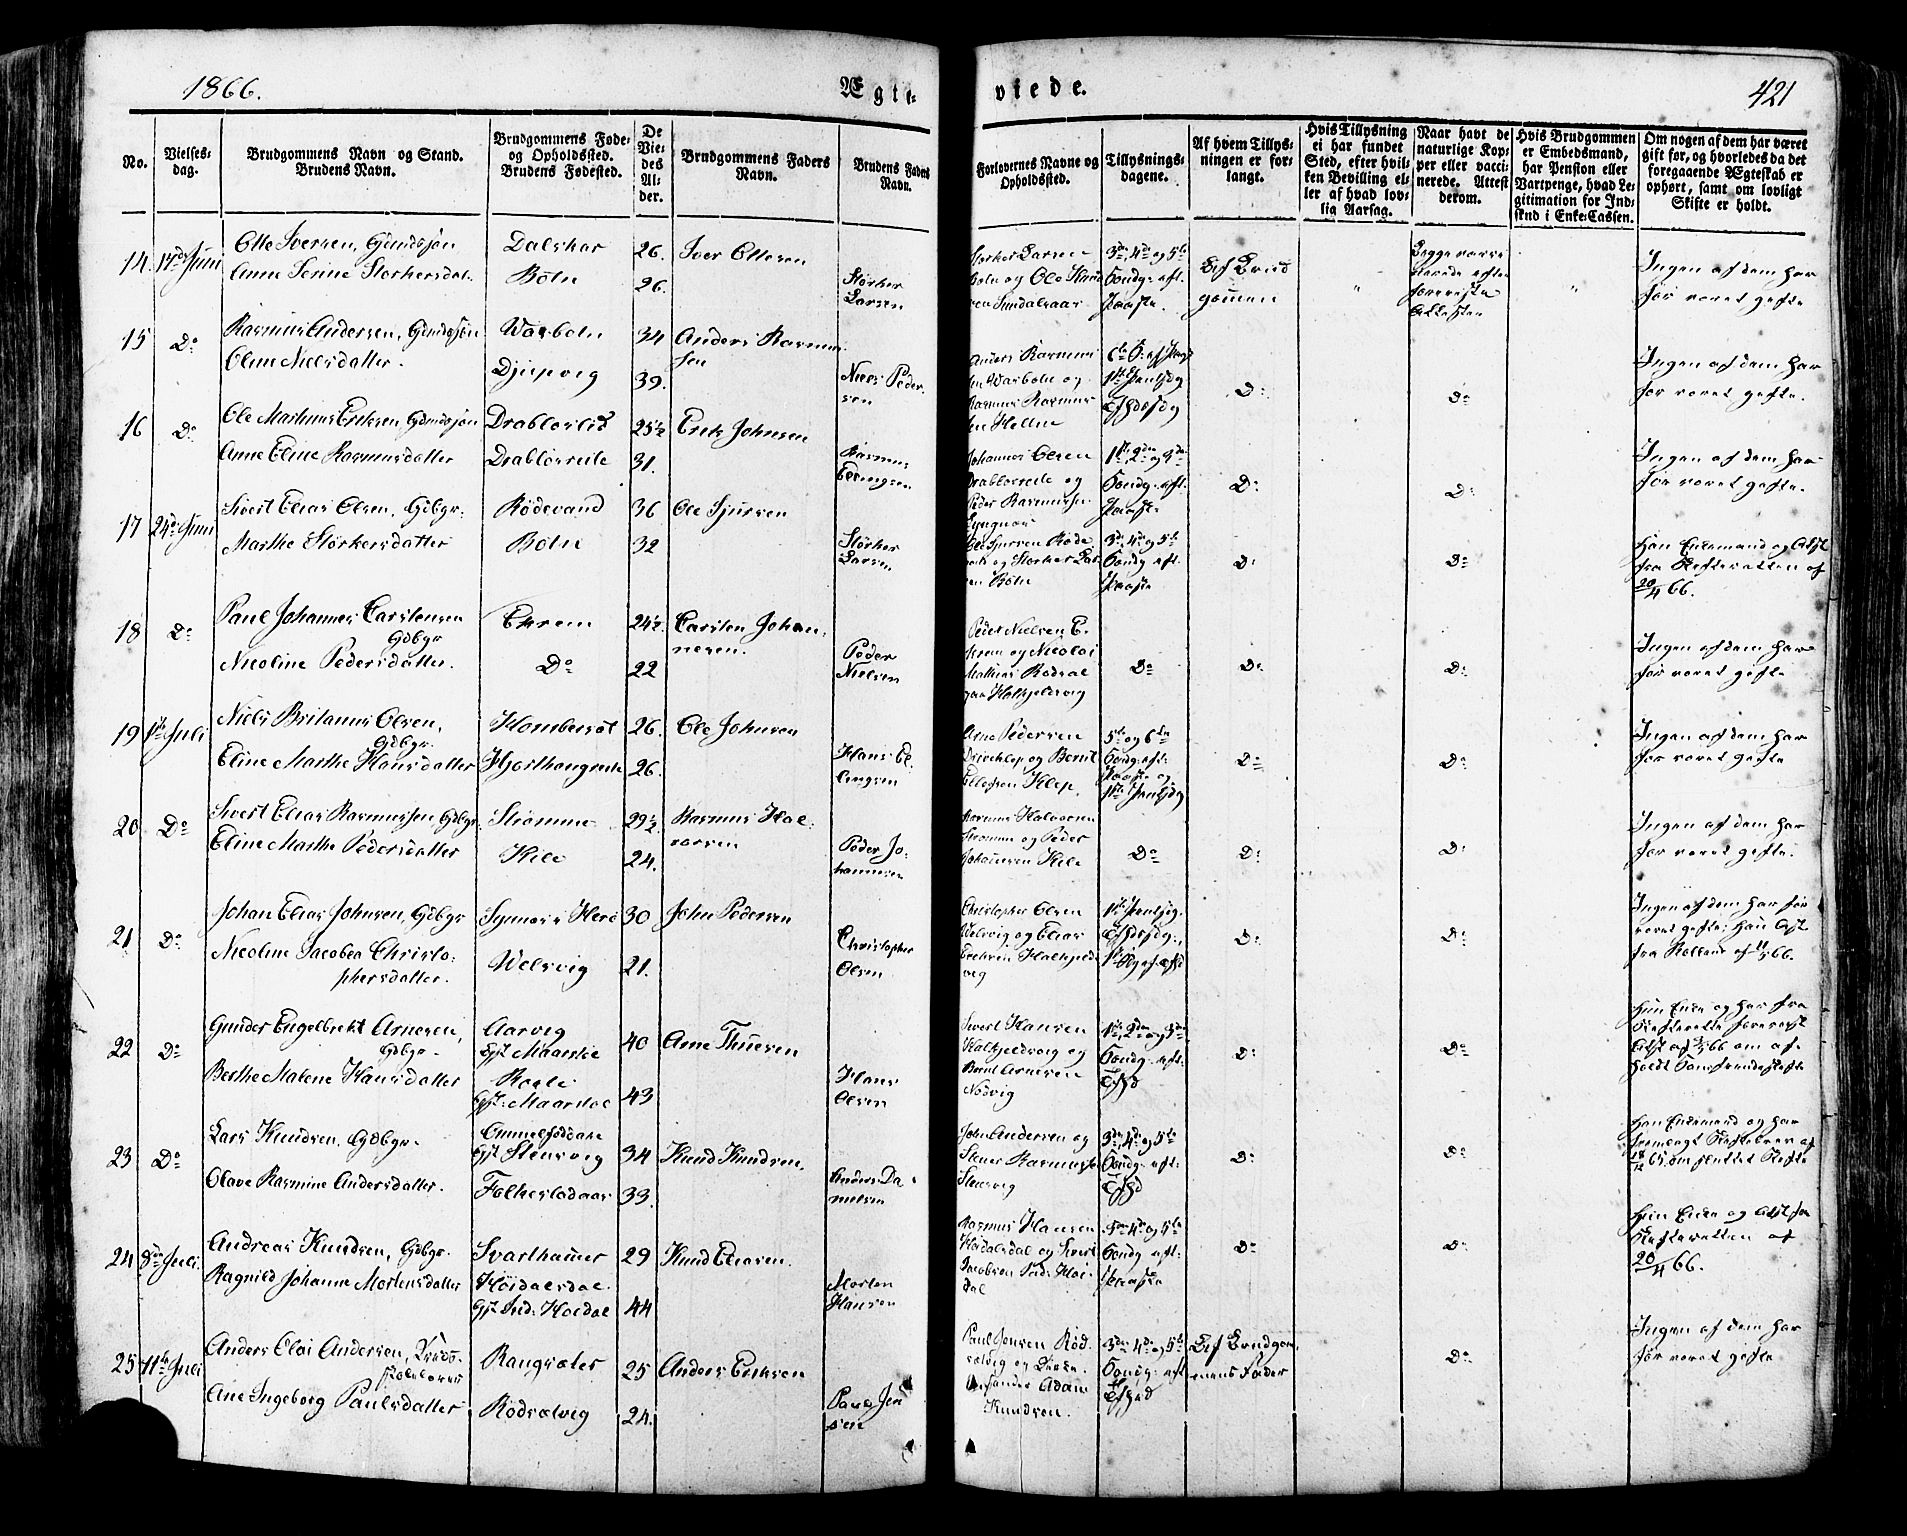 1866.
Ægte-
viede.
421
No.
Vielses-
dag.
Brudgommens Navn og Stand.
Brudens Navn.
Brudgommens Føde-
og Opholdssted.
Brudens Fødested.
De
Vie-
des
Al-
der.
Brudgommens Faders
Navn.
Brudens Faders
Navn.
Forlovernes Navne og
Opholdssted.
Tillysnings-
dagene.
Af hvem Tillys-
ningen er for-
langt.
Hvis Tillysning
ei har fundet
Sted, efter hvil-
ken Bevilling el-
ler af hvad lov-
lig Aarsag.
Naar havt de
naturlige Kop-
per eller vacci-
nerede. Attest
derom.
Hvis Brudgommen
er Embedsmand,
har Pension eller
Vartpenge, hvad Le-
gitimation for Ind-
skud i Enke-Cassen.
Om nogen af dem har været
gift før, og hvorledes da det
foregaaende Ægteskab er
ophørt, samt om lovligt
Skifte er holdt.
14 17de Juni
Otte Iversen, Gdmdsøn
Anne Serine Storkersdat.
Dalskar
Boln
26.
26.
Iver Ottesen
Størker
Larsen
Storker Larsen
Boln og Ole Knud
sen Sundalsaar
3de, 4de og 5te
Søndg. eft.
Paaske
Af Brud
gomen
Begge vacci
nerede efter
foreviste
Attester
Ingen af dem har
før været gifte
15 Do
Rasmus Andersen, Gdmdsøn
Oline Nielsdatter.
Warboln
Djupvig
34
39.
Anders Rasmus
sen
Niels Peder
sen
Anders Rasmus
sen Warboln og
Rasmus Rasmus
sen Hellen
6te S. ef. Paas
1ste Pintsdg
Do
Do
Ingen af dem har
før været gifte.
16 Do
Ole Martinus Eriksen, Gdmdsøn
Anne Eline Rasmusdatter
Drabløslid
Drabløsside
25½
31.
Erik Johnsen
Rasmus
Ellingsen
Johannes Olsen
Drabløsside og
Peder Rasmussen
Lyngnæs
1ste, 2den og 3de
Søndg. eft.
Paaske
Do
Do
Ingen af dem har
før været gifte.
17 24de Juni
Sivert Elias Olsen, Gdbgr.
Marthe Størkersdatter
Rødevand
Boln
36
32
Ole Sjursen
Størker
Larsen
Ole Sjursen Røde
vand og Størker Lar
sen Boln
3de, 4de og 5te
Søndg. eft.
Paaske
Do
Do
Han Enkemand og Attst
fra Skifteretten af
20/4 66.
18 Do
Paul Johannes Carstensen
Gdbgr
Nicoline Pedersdatter.
Ekrem
Do
24½
22
Carsten Johan-
nesen.
Peder
Nielsen
Peder Nielsen E-
krem og Nicolai
Mathias Rødsæt
paa Holkjeldsvig
Do
Do
Do
Ingen af dem har
før været gifte
19 1ste Juli
Niels Britanus Olsen,
Gdbgr.
Eline Marthe Hansdatter
Hombersæt
Hjorthangende
26.
26.
Ole Johnsen
Hans El
lingsen
Arne Pedersen
Driveklep og Bernt
Ellefsen Klep.
5te og 6te
Søndg. eft.
Paaske og
1ste Pintsdg
Do
Do
Ingen af dem har
før været gifte
20 Do
Sivert Elias Rasmussen, Gdbgr.
Eline Marthe Pedersdatter
Strømme
Kile
29½
24.
Rasmus Hal-
vorsen
Peder Jo-
hannesen
Rasmus Halvorsen
Strømme og Peder
Johannesen Kile
Do
Do
Do
Ingen af dem har
før været gifte.
21 Do
Johan Elias Johnsen, Gdbgr
Nicoline Jacobea Christo-
phersdatter.
Synnæs i Herø
Welsvig
30
21.
John Pedersen
Christopher
Olsen
Christopher Olsen
Welsvig og Elias
1ste Pintsdg.
Do
Do
Ingen af dem har før
været gifte; Han Attst
22 Do
Gunder Engelbrekt Arnesen,
Gdbgr.
Berthe Malene Hansdatter
Aarvig
40
43
Arne Thuesen
Hans
Olsen
Sivert Hansen
Holkjeldsvig og
Bernt Arnesen
Nødvig
1ste, 2den og 3de
Søndg. eft.
Do
Do
Hun Enke og har fra
Skifteretten forevist
23 Do
Lars Knudsen, Gdbgr.
Olave Rasmine Andersdatter.
34
33.
Knud Knudsen.
Anders Da-
nielsen
John Andersen og
Stener Rasmussen
Stensvig
3de, 4de og 5te
Søndg. eft.
Do
Do
Han Enkemand og har
fremlagt Skiftebrev af
18/12 65 om sluttet Skifte
24 8de Juli
Andreas Knudsen, Gdbgr.
Ragnild Johanne Mortensdatter
Svarthamer
Høidalsdal.
29
44
Knud Eliasen.
Morten
Hansen
Rasmus Hansen
Høidalsdal og Sivert
Jacobsen Inds. Høi-
dal
3de, 4de og 5te
Søndg. eft.
Paaske
Do
Do
Hun Enke og Attst fra
Skifteretten af
20/4 66.
25 11te Juli
Anders Eloi Andersen,
Ane Ingeborg Paulsdatter
Rangsæter
Rødsætvig
25
24.
Anders Eriksen
Paul Jen
sen
Paul Jensen Rød
sætvig og
Adam
Knudsen.
3de, 4de og 5te
Søndg. eft
Af Brudgom
mens Fader
Do
Ingen af dem har
før været gifte